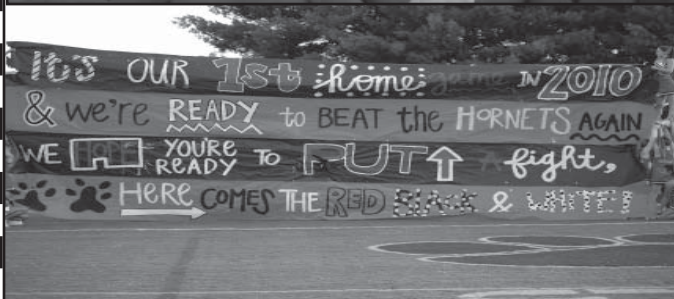 It's OUR 1st home game IN 2010
& we're READY to BEAT the HORNETS AGAIN
WE HOPE YOU'RE READY TO PUT A fight,
HERE COMES THE RED BLACK & WHITE!